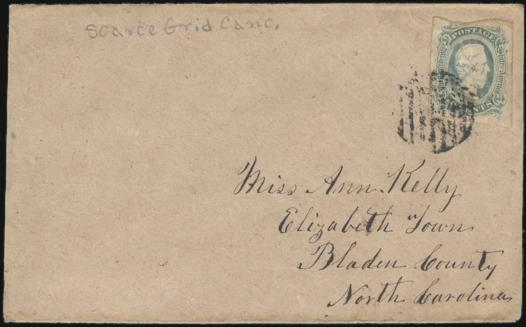 Scarce Grid Canc.
POSTAGE
Miss Ann Kelly
Elizabeth Town
Bladen County
North Carolina